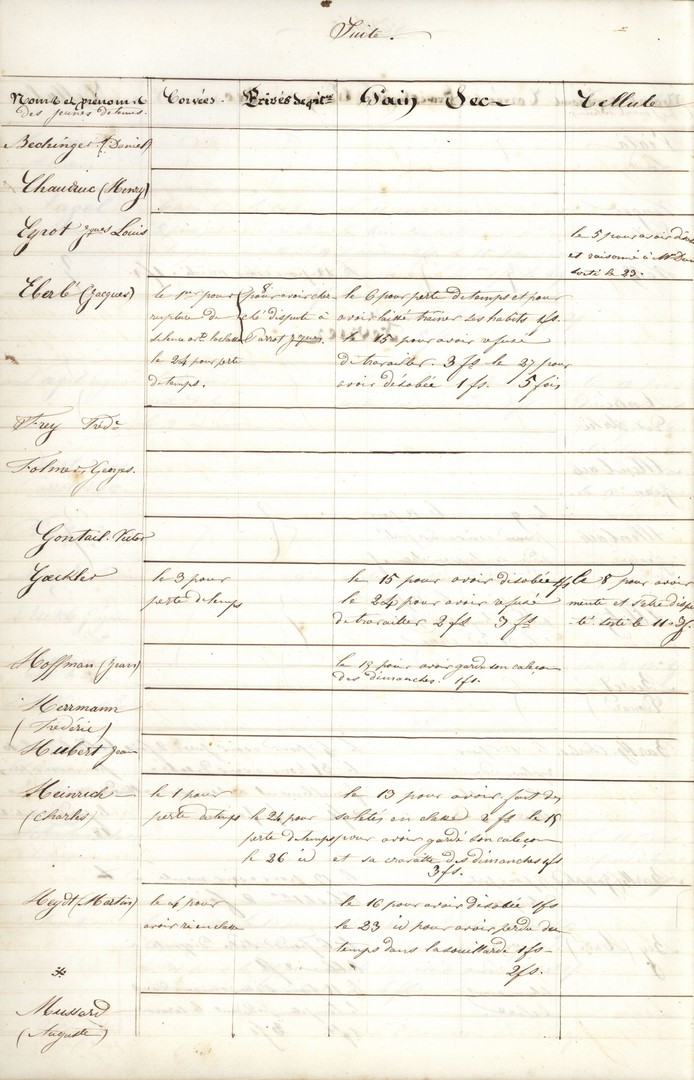 Suite.
Noms et prénoms
des jeunes détenus.
Corvées.
Privés de pitce
Pain Sec
Cellule
Bechinger (Daniel)
Chaudruc (Henry)
Egrot Jques Louis
le 5 pour avoir
et raisonné à Mr
sorti le 23.
Eberlé (Jacques)
le 1er pour
rupture de
le 24 pour perte
de temps.
8
pour avoir cher
ché dispute à
Parrot Jques.
le 6 pour perte de temps et pour
avoir laissé trainer ses habits 1 fs.
le 15 pour avoir refusé
de travailler. 3 fs le 27 pour
avoir désobéie 1 fs. 5 fois
Frey Fredc
Folmer, Georges.
Gontail. Victor
Gœckler
le 3 pour
perte de temps
le 15 pour avoir désobéie 1 fs
le 24 pour avoir refusé
de travailler 2 fs 3 fs
le 8 pour avoir
mente et s'etre disp
té. sorti le 11
Hoffman (Jean)
le 18 pour avoir gardé son caleçon
des dimanches. 1 fs.
Herrmann
(Frédéric)
Hubert Jean
Heinrich
(Charles)
le 1 pour
perte de temps
le 24 pour
perte de temps
le 26 id
le 13 pour avoir fait des
saletés en classe 2 fs le 18
pour avoir gardé son caleçon
et sa cravatte des dimanches 1 fs
3 fs.
Heydt (Martin)
le 4 pour
avoir ri en classe
le 16 pour avoir désobéie 1 fs
le 23 id pour avoir perdu du
temps dans la souillarde 1 fs
2 fs.
Mussard
(Auguste)